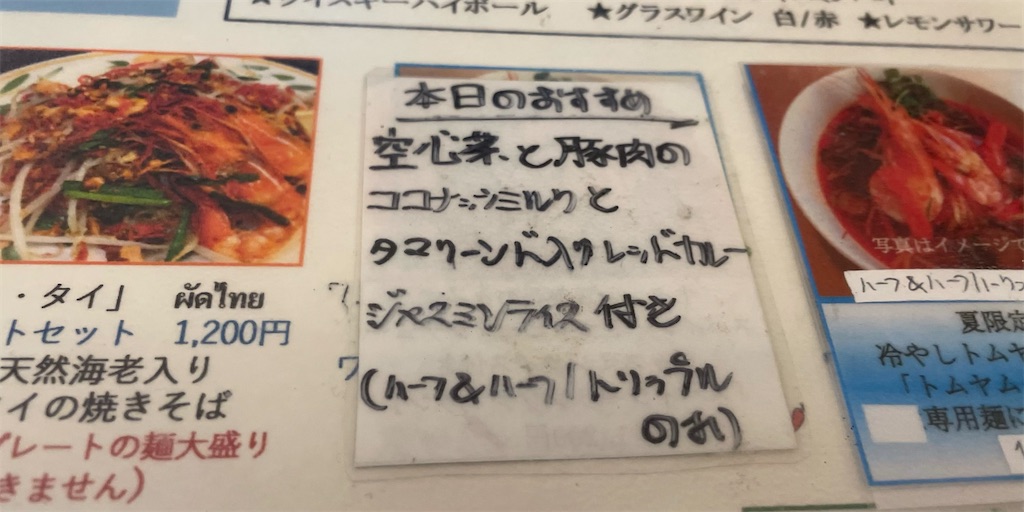 ★ウイスキーハイボール ★グラスワイン 白/赤 ★レモンサワー
本日のおすすめ
空心菜と豚肉の
ココナッツミルクと
タマリーンド入りレッドカレー
ジャスミンライス付き
(ハーフ&ハーフ/トリップル
のみ)
・タイ」 ผัดไทย
トセット 1,200円
天然海老入り
イの焼きそば
プレートの麺大盛り
きません)
写真はイメージで
ハーフ&ハーフ/トリップ
夏限定
冷やしトムヤ
「トムヤム
専用麺に